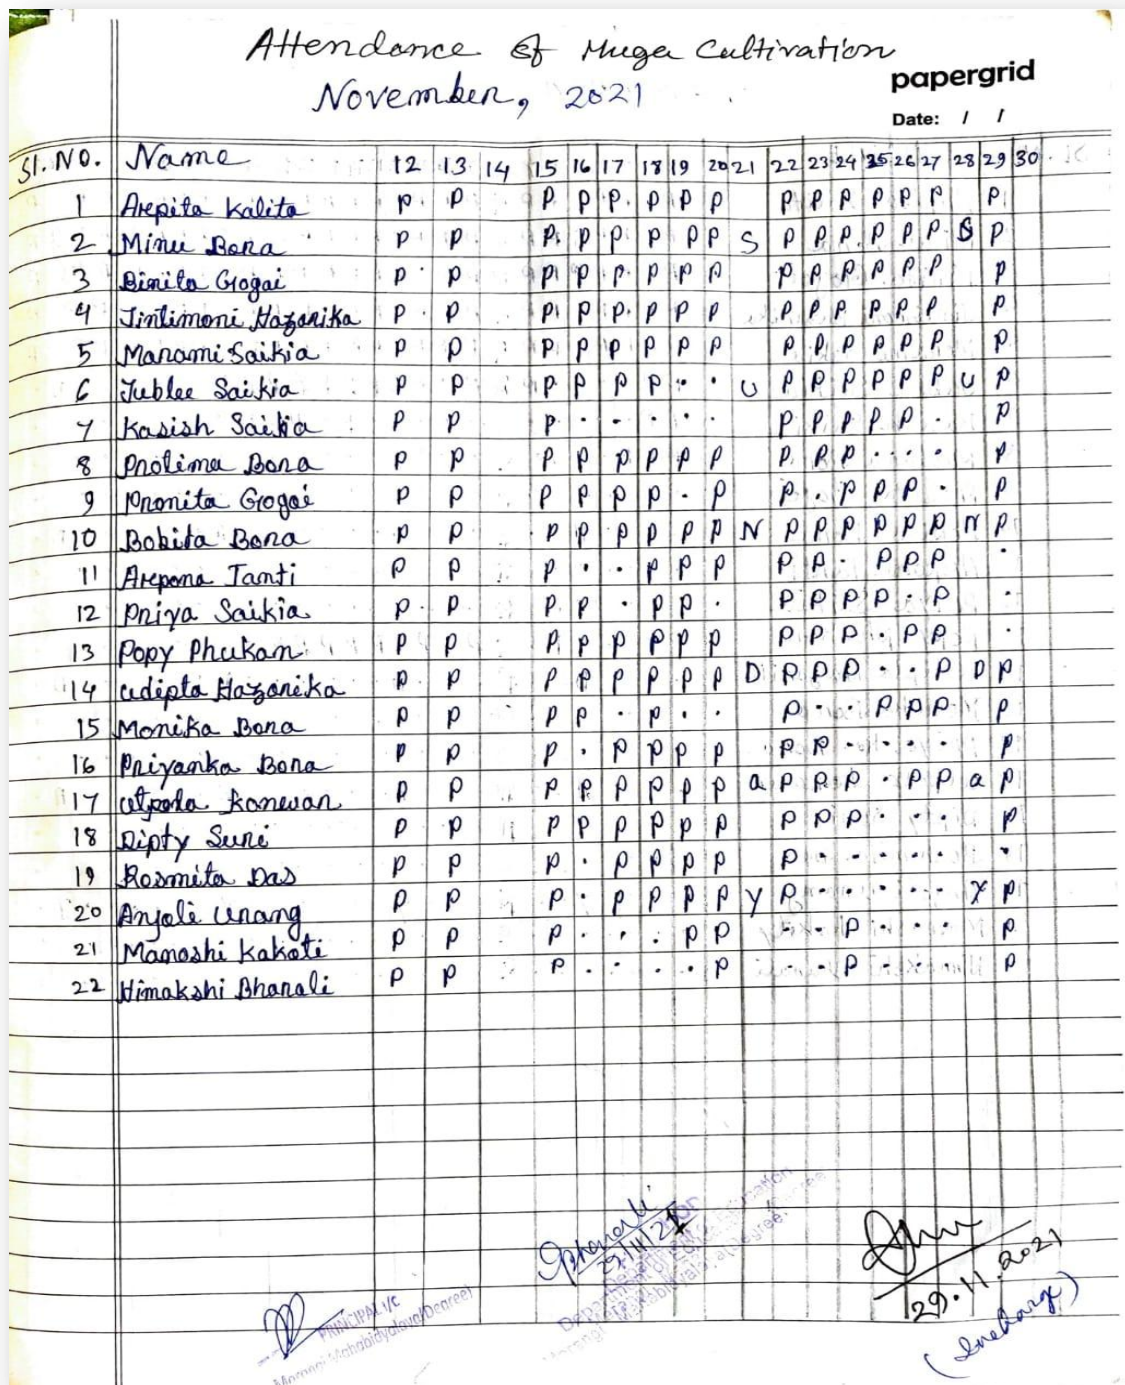 Attendance of Muga Cultivation
November, 2021
papergrid
Date: / /
Sl. No. Name 12 13 14 15 16 17 18 19 20 21 22 23 24 25 26 27 28 29 30
1 Arpita Kalita P P P P P P P P P P P P P P P
2 Minu Bora P P P P P P P P S P P P P P P S P
3 Binita Gogoi P P P P P P P P P P P P P P P
4 Jintimoni Hazarika P P P P P P P P P P P P P P P
5 Manami Saikia P P P P P P P P P P P P P P P
6 Jublee Saikia P P P P P P . . U P P P P P P U P
7 Kasish Saikia P P P . . . . . P P P P P . P
8 Protima Bora P P P P P P P P P P P . . . P
9 Pronita Gogoi P P P P P P . P P . P P P . P
10 Bobita Bora P P P P P P P P N P P P P P P N P
11 Arpona Tanti P P P . . P P P P P . P P P .
12 Priya Saikia P P P P . P P . P P P P . P .
13 Popy Phukan P P P P P P P P P P P . P P .
14 Udipta Hazarika P P P P P P P P D P P P . . P D P
15 Monika Bora P P P P . P . . P . . P P P P
16 Priyanka Bora P P P . P P P P P P . . . . P
17 Utpola Konwar P P P P P P P P a P P P . P P a P
18 Dipty Suri P P P P P P P P P P P . . . P
19 Rosmita Das P P P . P P P P P . . . . . .
20 Anjali Urang P P P . P P P P Y P . . . . . Y P
21 Manashi Kakoti P P P . . . P P . . P . . . P
22 Himakshi Bharali P P P . . . . P . . P . . . P
29/11/21
29.11.2021
(Incharge)
PRINCIPAL I/C
Morangi Mahabidyalaya (Degree)